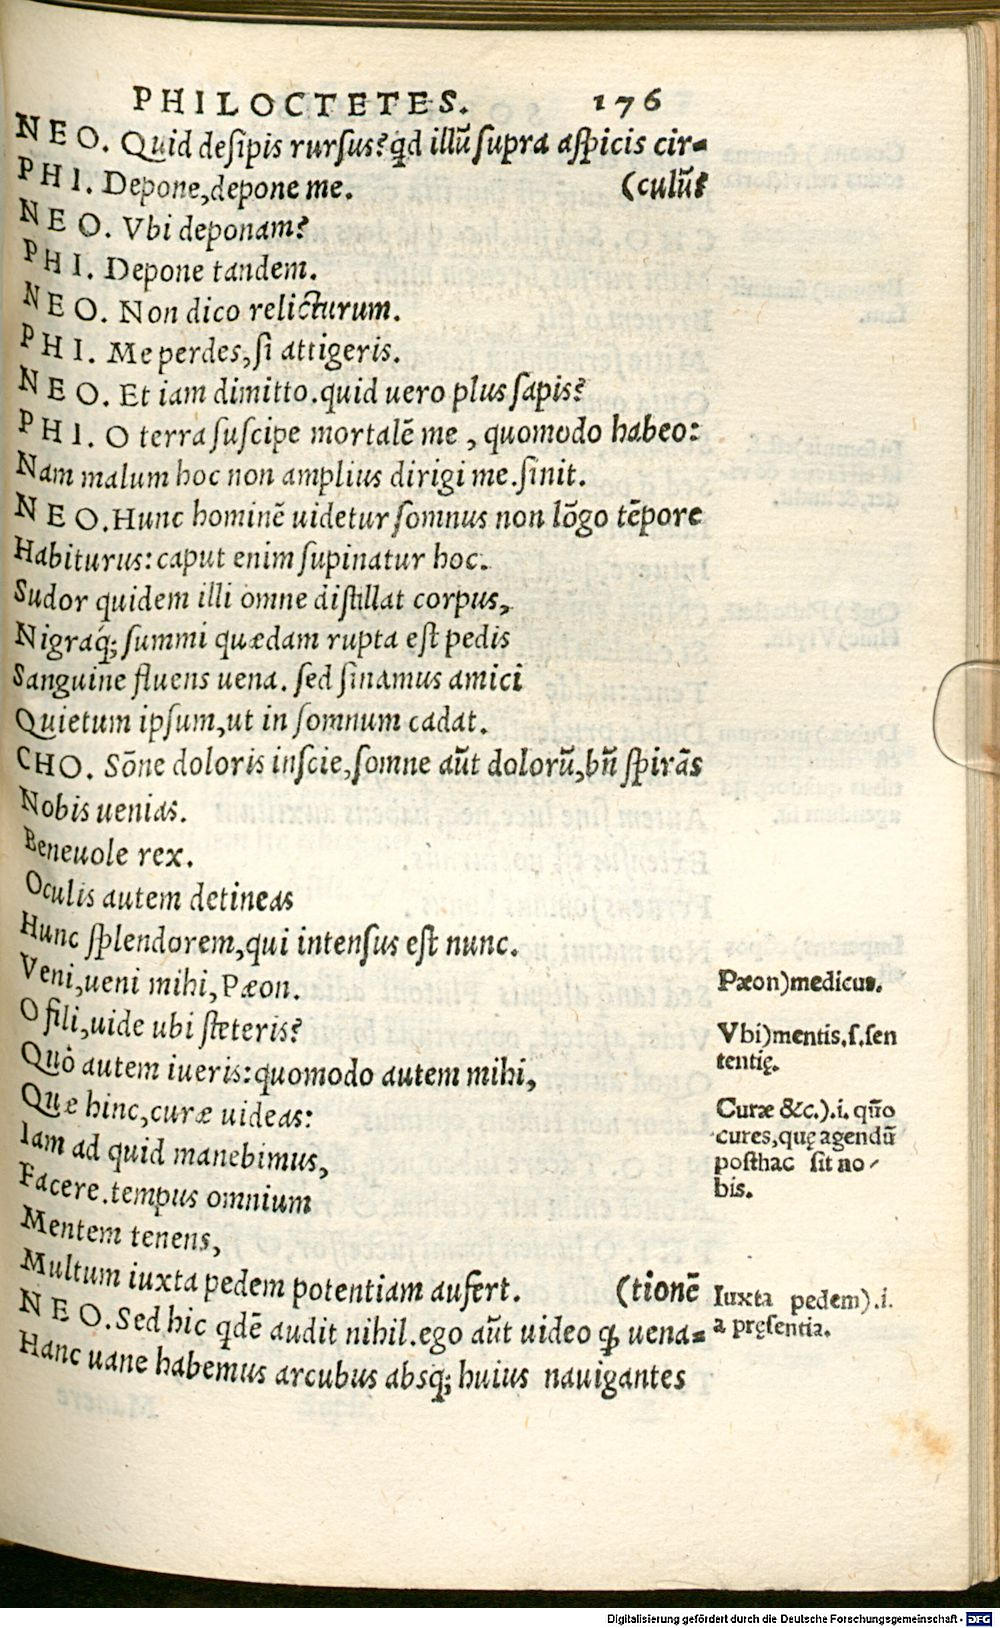 PHILOCTETES. 176
NEO. Quid desipis rursus? qd illũ supra aspicis cir=
PHI. Depone, depone me. (culũ?
NEO. Vbi deponam?
PHI. Depone tandem.
NEO. Non dico relicturum.
PHI. Me perdes, si attigeris.
NEO. Et iam dimitto. quid uero plus sapis?
PHI. O terra suscipe mortalẽ me, quomodo habeo:
Nam malum hoc non amplius dirigi me. sinit.
NEO. Hunc hominẽ uidetur somnus non lõgo tẽpore
Habiturus: caput enim supinatur hoc.
Sudor quidem illi omne distillat corpus,
Nigraq; summi quædam rupta est pedis
Sanguine fluens uena. sed sinamus amici
Quietum ipsum, ut in somnum cadat.
CHO. Sõne doloris inscie, somne aũt dolorũ, bñ spirãs
Nobis uenias.
Beneuole rex.
Oculis autem detineas
Hunc splendorem, qui intensus est nunc.
Veni, ueni mihi, Pæon.
O fili, uide ubi steteris?
Quò autem iueris: quomodo autem mihi,
Quæ hinc, curæ uideas:
Iam ad quid manebimus,
Facere. tempus omnium
Mentem tenens,
Multum iuxta pedem potentiam aufert. (tionẽ
NEO. Sed hic qdẽ audit nihil. ego aũt uideo ꝙ uena=
Hanc uane habemus arcubus absq; huius nauigantes
Pæon) medicus.
Vbi) mentis. s. sen
tentię.
Curæ &c.). i. quo
cures, quę agendũ
posthac sit no-
bis.
Iuxta pedem). i.
a pręsentia.
Digitalisierung gefördert durch die Deutsche Forschungsgemeinschaft - DFG